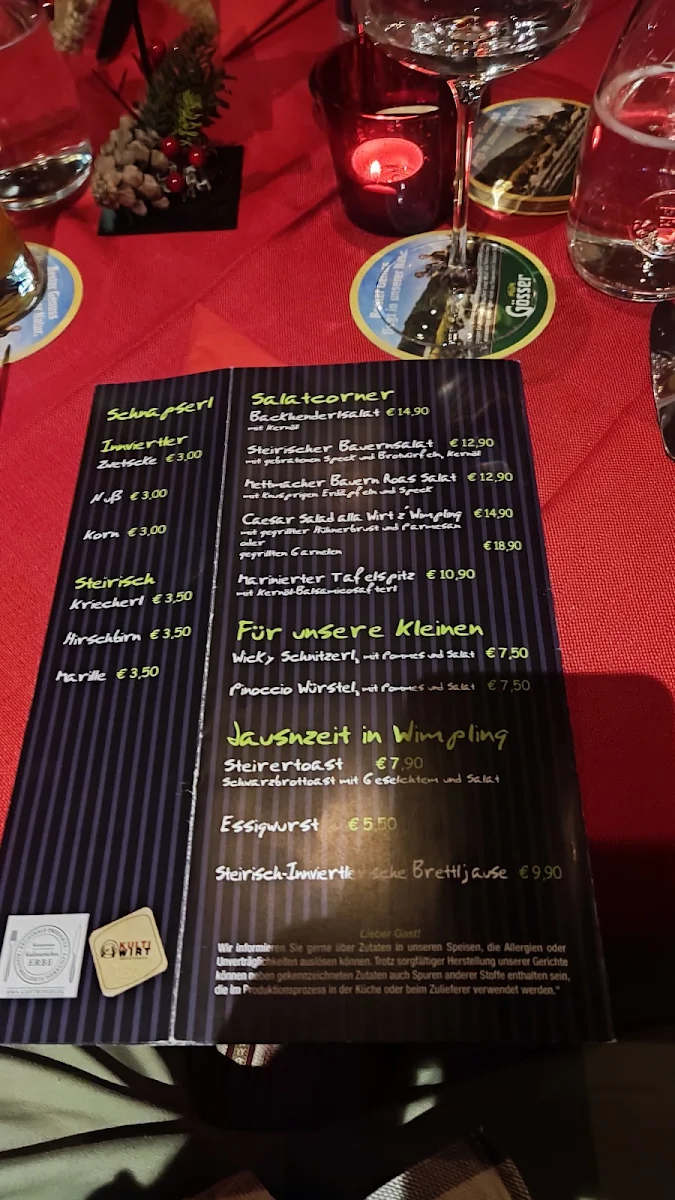 Gösser
Schnapserl
Innviertler
Zwetscke € 3,00
Nuß € 3,00
Korn € 3,00
Steirisch
Kriecherl € 3,50
Hirschbirn € 3,50
Marille € 3,50
KULTI
WIRT
Kulinarisches
ERBE
Salatcorner
Backhenderlsalat € 14,90
mit Kernöl
Steirischer Bauernsalat € 12,90
mit gebratenen Speck und Brotwürfeln, Kernöl
Mettmacher Bauern Roas Salat € 12,90
mit Knusprigen Erdäpfeln und Speck
Caesar Salad alla Wirt z´Wimpling € 14,90
mit gegrillter Hühnerbrust und Parmesan
oder
gegrillten Garnelen € 18,90
Marinierter Tafelspitz € 10,90
mit Kernöl-Balsamicosafterl
Für unsere Kleinen
Wicky Schnitzerl, mit Pommes und Salat € 7,50
Pinoccio Würstel, mit Pommes und Salat € 7,50
Jausnzeit in Wimpling
Steirertoast € 7,90
Schwarzbrottoast mit Geselchtem und Salat
Essigwurst € 5,50
Steirisch-Innviertlerische Brettljause € 9,90
Lieber Gast!
Wir informieren Sie gerne über Zutaten in unseren Speisen, die Allergien oder
Unverträglichkeiten auslösen können. Trotz sorgfältiger Herstellung unserer Gerichte
können neben gekennzeichneten Zutaten auch Spuren anderer Stoffe enthalten sein,
die im Produktionsprozess in der Küche oder beim Zulieferer verwendet werden."